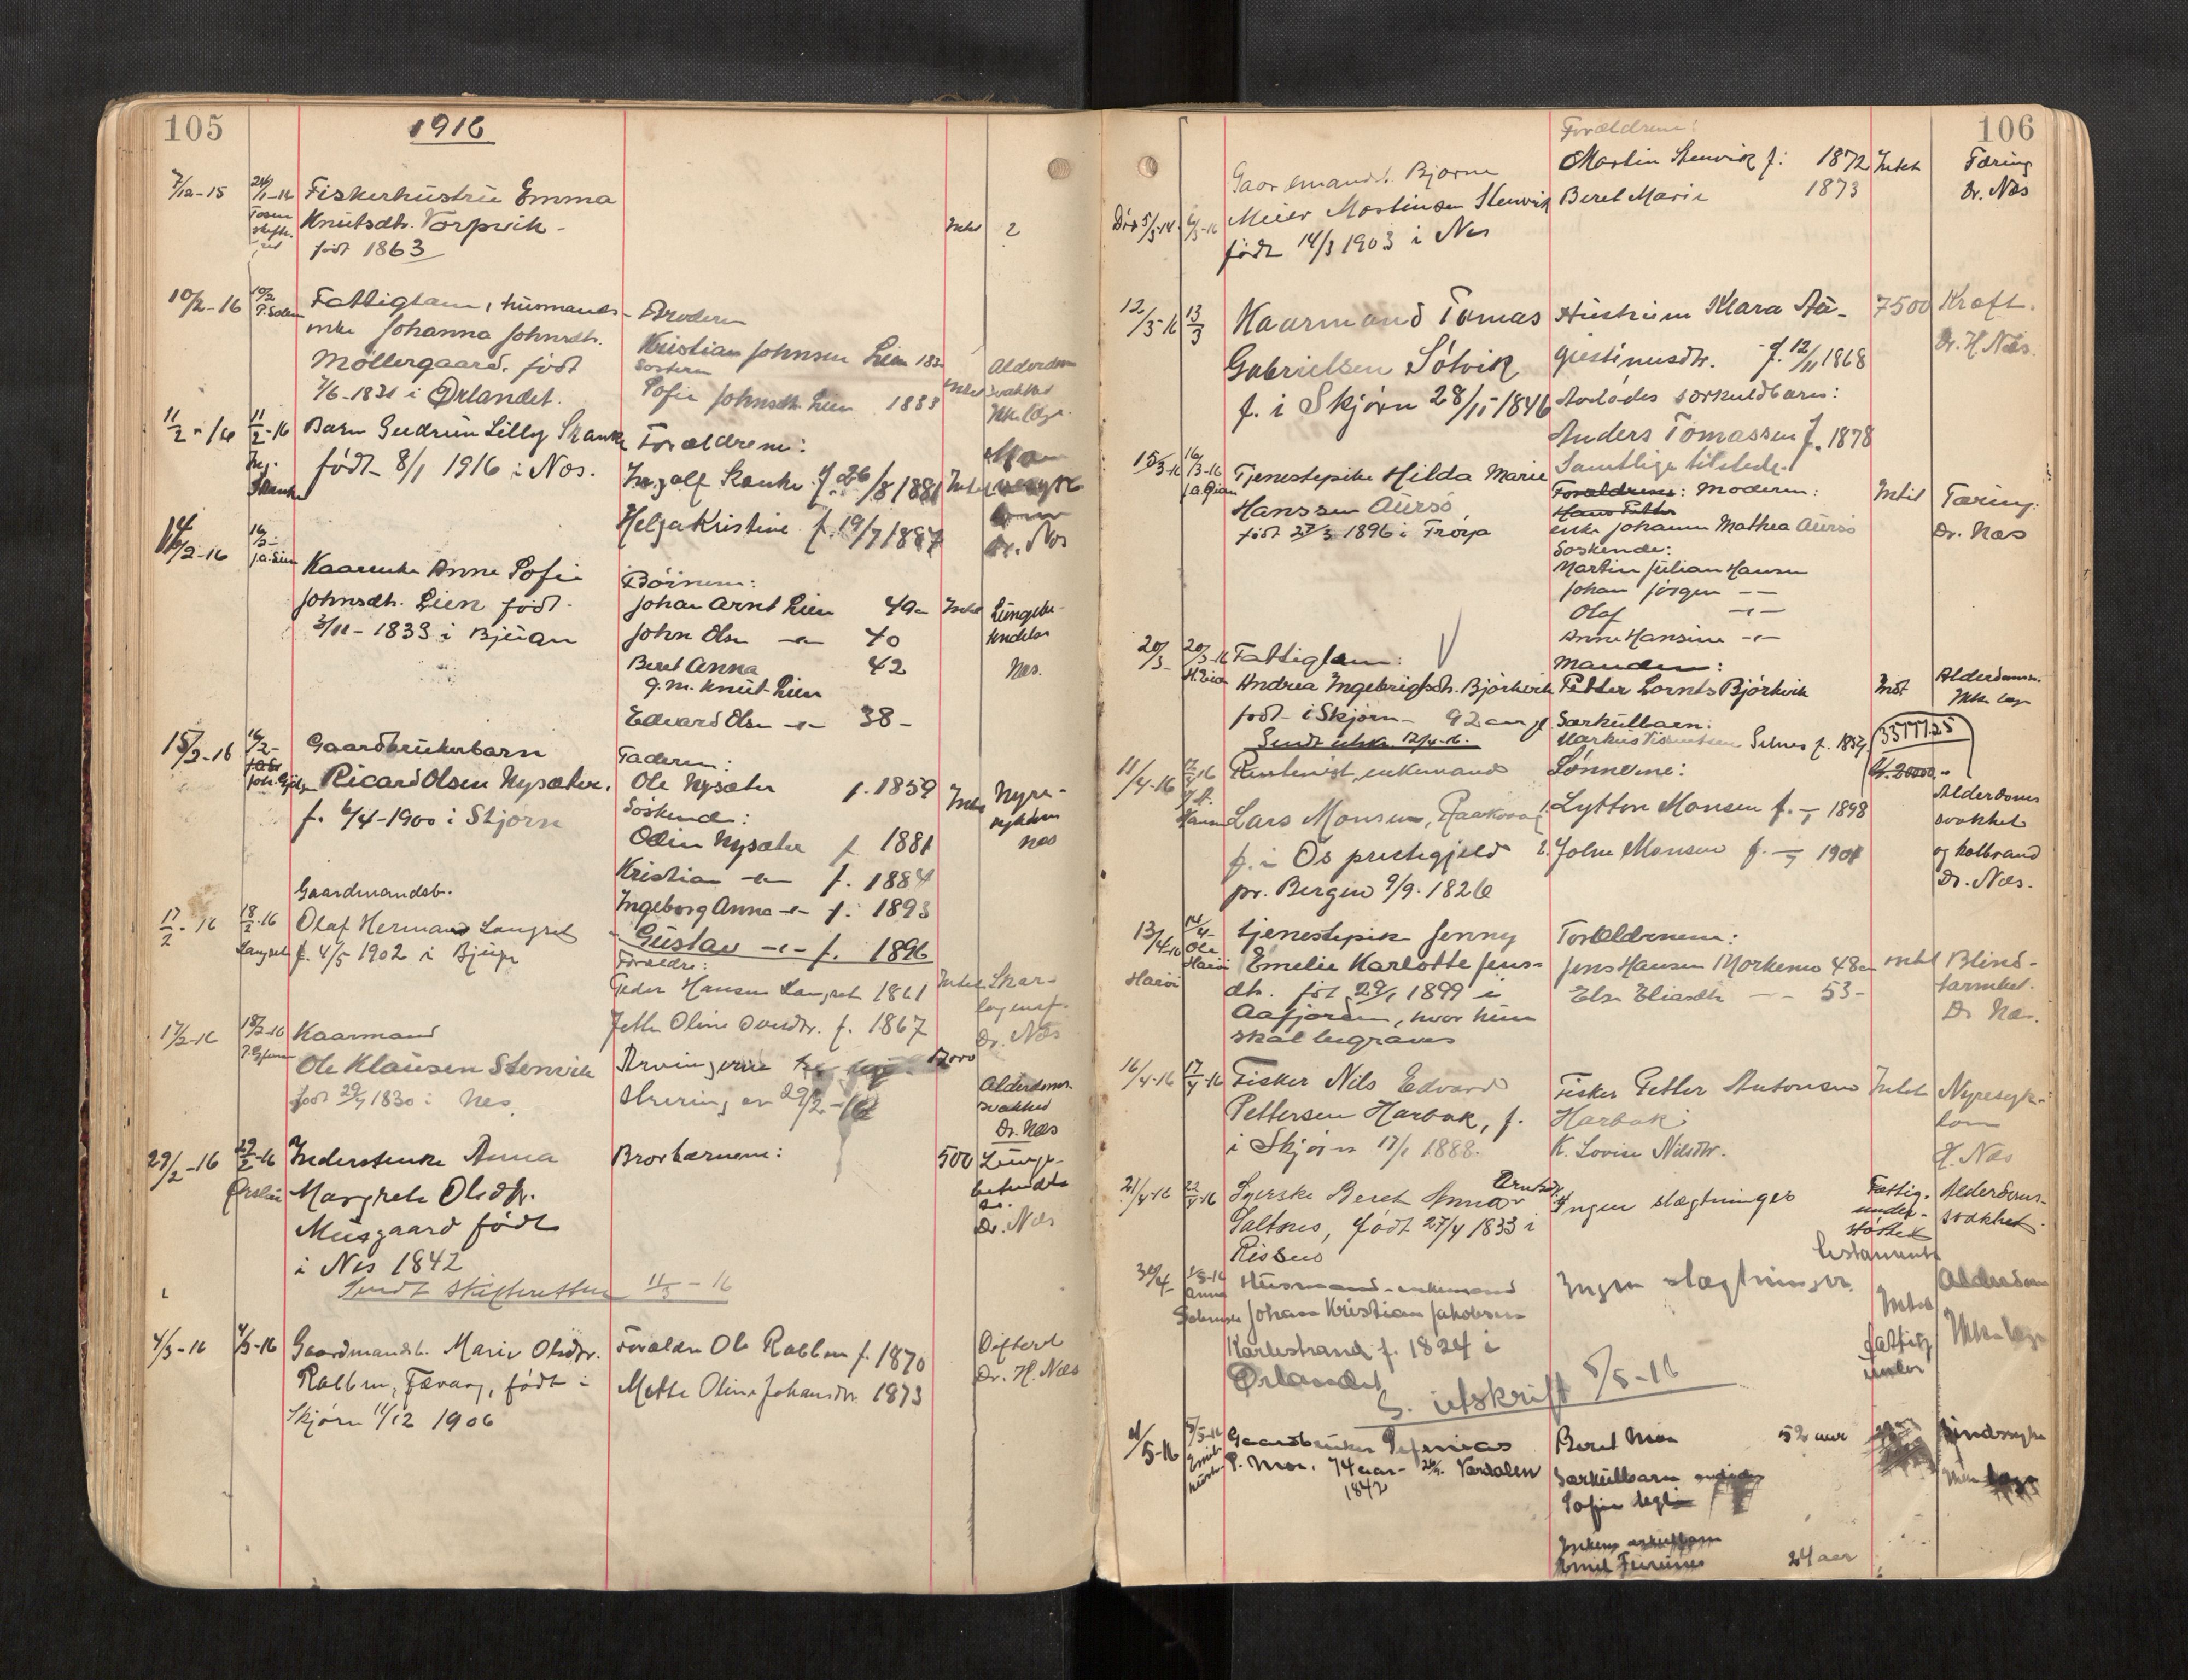 105
1916
7/12-15
Fiskerhustru Emma
Knutsdtr. Vorpvik -
født 1863
Intet
2
10/2-16
10/2
Fattiglem, husmands-
enke Johanna Johnsdtr.
Möllergaard, født
7/6-1831 i Ørlandet.
Broderen
Kristian Johnsen Lien
Søstern
Sofie Johnsdtr. Lien 1833
Intet
Alderdom
svakhet
Ikke læge.
11/2-16
11/2-16
Barn Gudrun Lilly Skanke
født 8/1 1916 i Nes.
Forældrene:
Ingolf Skanke f. 26/8 1881
Helga Kristine f. 19/7 1887
Intet
Dr. Næs
14/2-16
16/2-
J.A. Lien
Kaarenke Anne Sofie
Johnsdtr. Lien født
3/11-1833 i Bjugn
Börnene:
Johan Arnt Lien 49 a
John Olsen -"- 40
Beret Anna 42
g.m. Knut Lien
Edvard Olsen -"- 38-
Intet
Lungebe-
tendelse
Næs.
15/2-16
16/2-
Gaardbrukerbarn
Ricard Olsen Nysæter.
f. 6/4-1900 i Skjørn
Faderen:
Ole Nysæter f. 1859
Söskend:
Odin Nysæter f. 1881
Kristian -"- f. 1884
Ingeborg Anna -"- f. 1893
Gustav -"- f. 1896
Intet
Nyre-
sykdom
Næs
17/2-16
18/2-16
Langset
Gaardmandsb.
Olaf Herman Langset
f. 4/5 1902 i Bjugn
Forældre:
Peder Hansen Langset 1861
Jette Oline Ovesdtr. f. 1867
Intet
Skar-
lagensf.
Dr. Næs
17/2-16
18/2-16
Kaarmand
Ole Klausen Stenvik
født 29/7 1830 i Nes.
Arvingerne
29/2-16
12000
Alderdoms-
svakhed
Dr. Næs
29/2-16
29/2-16
Inderstenke Anna
Margrete Olsdtr.
Musgaard født
i Nes 1842
Brorbarnene:
500
Lunge-
betendelse
Dr. Næs
Sendt skifteretten 11/3-16
4/3-16
4/3-16
Gaardmandsb. Marie Olsdtr.
Rabben, Tævang, født i
Skjørn 11/12 1906
Forældre Ole Rabben f. 1870
Mette Oline Johansdtr. 1873
Difteri
Dr. H. Næs
106
Forældrene:
Død 5/3-16
6/3-16
Gaardmands. Bjarne
Meier Martinsen Stenvik
født 14/3 1903 i Nes
Martin Stenvik f: 1872
Beret Marie 1873
Intet
Tæring
Dr. Næs
12/3-16
13/3
Kaarmand Tomas
Gabrielsen Sötvik
f. i Skjørn 28/11 1846
Hustruen Klara Au-
gustinusdtr. f. 12/11 1868
Avdødes særkuldbarn:
Anders Tomassen f. 1878
Samtlige tilstede.
7500
Kræft.
Dr. H. Næs.
15/3-16
16/3-16
Tjenestepike Hilda Marie
Hanssen Aursö
født 27/3 1896 i Fröya
Forældrene: Moderen:
Hans Petter
enke Johanna Mathea Aursö
Søskende:
Martin Julian Hansen
Johan Jörgen -"-
Olaf -"-
Anne Hansine -"-
Intet
Tæring.
Dr. Næs
20/3-
20/3-16
Fattiglem:
Andrea Ingebrigtsdtr. Björkvik
født i Skjørn - 92 aar gl.
Sendt utskr. 12/4-16.
Manden:
Petter Lornts Björkvik
Særkulbarn:
Intet
Alderdomsv.
Ikke læge
11/4-16
12/4-16
Rentenist, enkemand
Lars Monsen, Raakvaag
f. i Os prestegjeld
pr. Bergen 9/9. 1826
Sønnerne:
1. Lytton Monsen f. 1898
2. John Monsen f. 1901
Alderdoms
svakhet
og kolbrand
Dr. Næs.
13/4-16
14/4-
Ole
Harøi
Tjenestepike Jenny
Emelie Karlotte Jens-
dtr. født 29/1 1899 i
Aafjorden, hvor hun
skal begraves
Forældrenene:
Jens Hansen Morkemo 48 a
Else Eliasdtr -"- 53-
Intet
Blind-
tarmbet.
Dr Næs.
16/4-16
17/4-16
Fisker Nils Edvard
Pettersen Harbak, f.
i Skjørn 17/1 1888.
Fisker Petter Antonsen
Harbak
K. Lovise Nilsdtr.
Intet
Nyresyk-
dom
H. Næs
21/4-16
22/4-16
Syerske Beret Anna Arntsdtr
Saltnes, født 27/4 1833 i
Rissen
Ingen slægtninger
Fattig-
under-
støttet
testamente
Alderdoms-
svakhet
30/4-
1/5-16
Husmand-enkemand
Johan Kristian Jakobsen
Karlestrand f. 1824 i
Ørlandet
Ingen slægtninger.
Intet
fattig
under
Alderdom
Ikke læge
S. utskrift 5/5-16
4/5-16
5/5-16
Gaardbruker Pefinias
P. Moe. 74 aar - Værdalen
1842
Beret Moe 52 aar
Særkulbarn
Sofie
24 aar
Sindssyke
Ikke læge